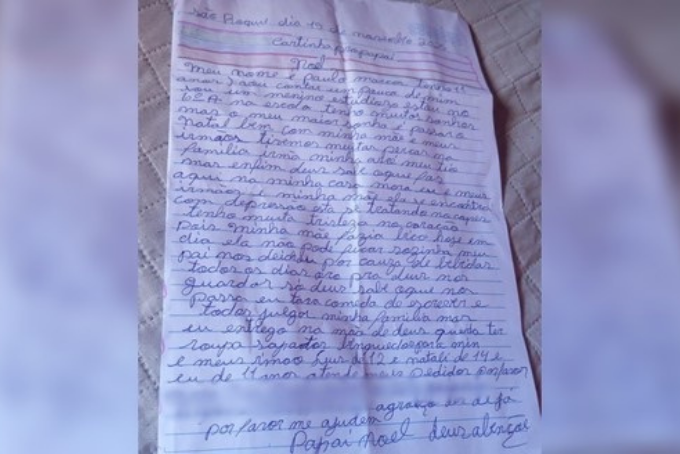 São Roque dia 19 de novembro
Cartinha pra papai
Noel
Meu nome é paulo marcos tenho 11
anos vou contar um pouco de mim
sou um menino estudioso estou no
6º A na escola tenho muitos sonhos
mas o meu maior sonho é passar o
natal bem com minha mãe e meus
irmãos tivemos muitas percas na
família irmã minha avó meu tio
mas enfim deus sabe oque faz
aqui na minha casa mora eu e meus
irmãos e minha mãe ela se encontra
com depressão está se tratando no capes
tenho muita tristeza no coração
pois minha mãe fazia hoje em
dia ela não pode ficar sozinha meu
pai nos deixou por causa de bebidas
todos os dias oro pra deus nos
guardar só deus sabe oque nos
passa eu tava com medo de escrever e
todos julgar minha família mas
eu entrego na mão de deus queria ter
roupa sapatos brinquedos para min
e meus irmãos de 12 e natali de 14 e
eu de 11 anos atende meus pedidos por favor
agradeço des de já
por favor me ajudem
Papai Noel deus abençoe